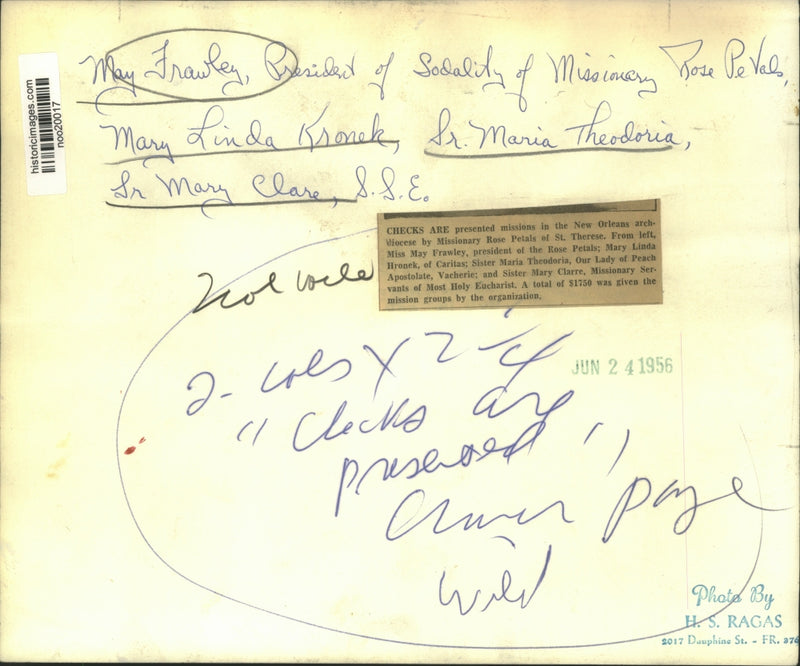 historicimages.com
noo20017
May Frawley, President of Sodality of Missionary Rose Petals,
Mary Linda Kronek, Sr. Maria Theodoria,
Sr Mary Clare, S.S.E.
CHECKS ARE presented missions in the New Orleans arch-
diocese by Missionary Rose Petals of St. Therese. From left,
Miss May Frawley, president of the Rose Petals; Mary Linda
Hronek, of Caritas; Sister Maria Theodoria, Our Lady of Peach
Apostolate, Vacherie; and Sister Mary Clarre, Missionary Ser-
vants of Most Holy Eucharist. A total of $1750 was given the
mission groups by the organization.
JUN 24 1956
2- cols X 2-4
"Checks are
presented"
page
Wild
Photo By
H. S. RAGAS
2017 Dauphine St. - FR. 376